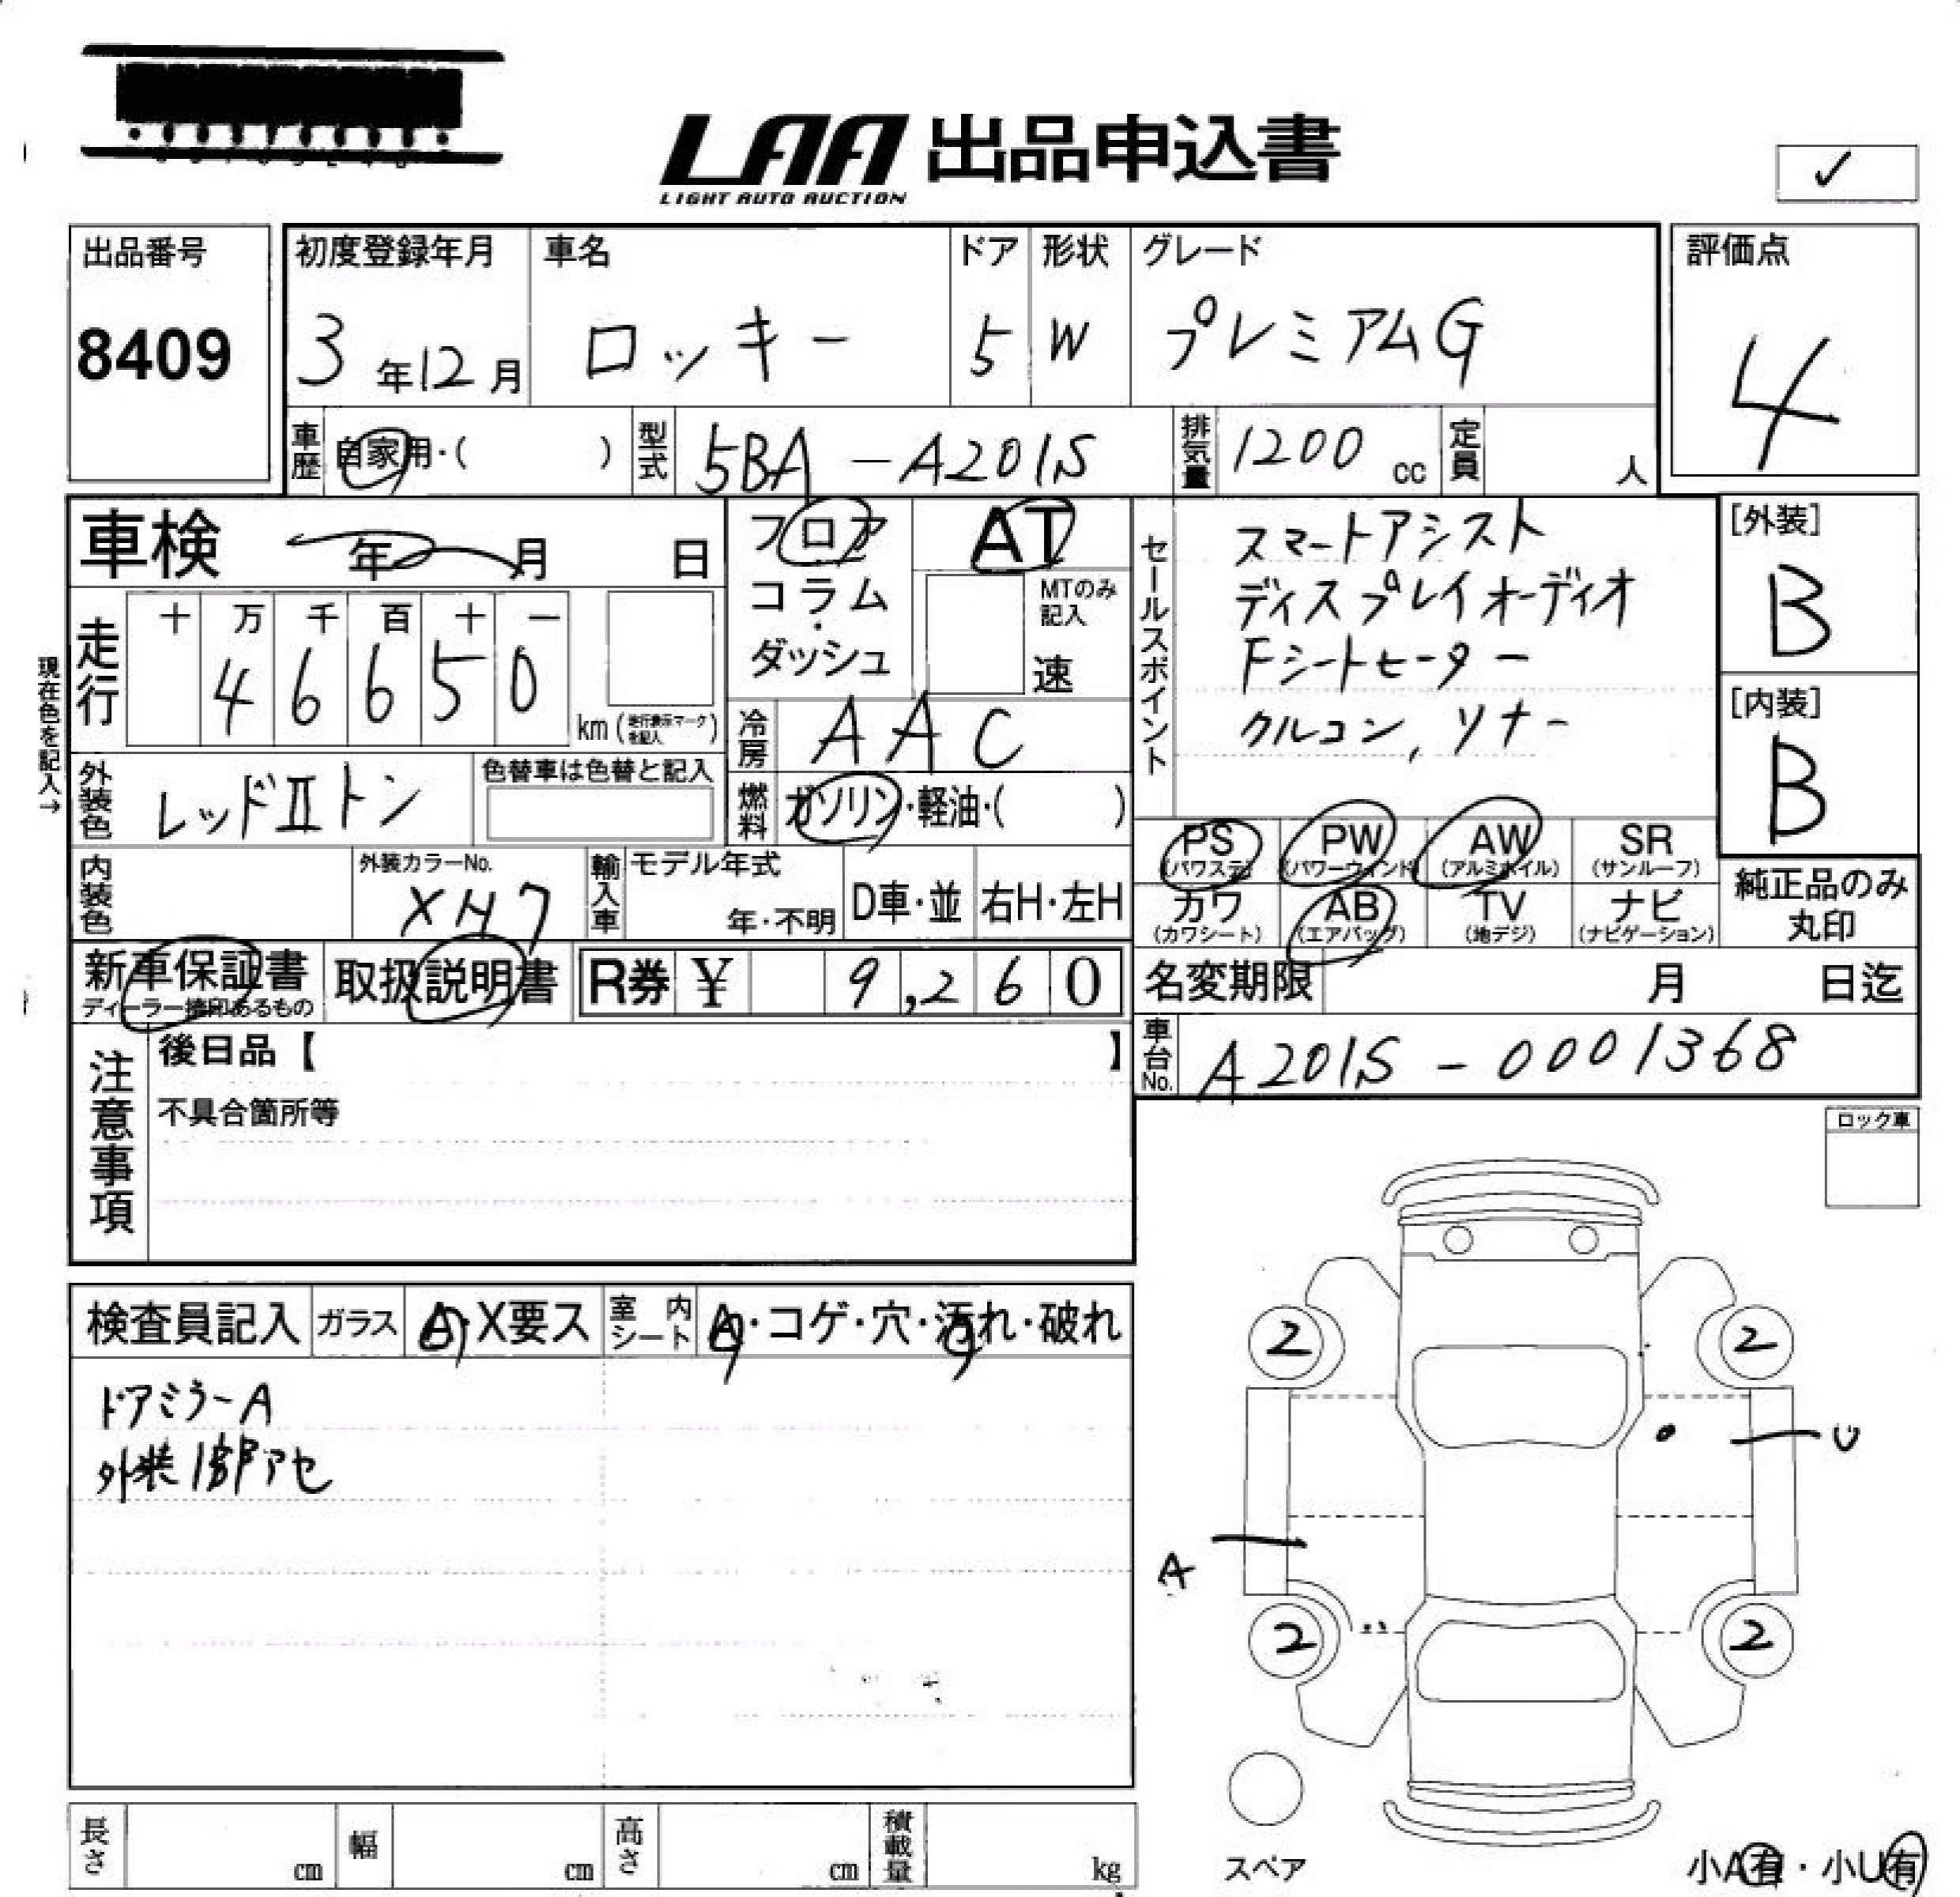 LAA 出品申込書
LIGHT AUTO AUCTION
✓
出品番号
8409
初度登録年月
3年12月
車名
ロッキー
ドア
5
形状
W
グレード
プレミアムG
評価点
4
車歴
自家用・( )
型式
5BA-A201S
排気量
1200 cc
定員
人
車検 年 月 日
フロア
コラム
・
ダッシュ
AT
MTのみ
記入
速
セールスポイント
スマートアシスト
ディスプレイオーディオ
Fシートヒーター
クルコン, ソナー
[外装]
B
[内装]
B
現在色を記入→
走行
十 万 千 百 十 一
4 6 6 5 0
km (走行表示マークを記入)
冷房
AAC
外装色
レッドⅡトン
色替車は色替と記入
燃料
ガソリン・軽油・( )
PS
(パワステ)
PW
(パワーウィンド)
AW
(アルミホイル)
SR
(サンルーフ)
内装色
外装カラーNo.
XH7
輸入車
モデル年式
年・不明
D車・並
右H・左H
カワ
(カワシート)
AB
(エアバッグ)
TV
(地デジ)
ナビ
(ナビゲーション)
純正品のみ
丸印
新車保証書
ディーラー捺印あるもの
取扱説明書
R券 ¥ 9,260
名変期限 月 日迄
車台No.
A201S-0001368
注意事項
後日品【 】
不具合箇所等
ロック車
検査員記入
ガラス
A・X要ス
室内
シート
A・コゲ・穴・汚れ・破れ
ドアミラーA
外装1部アセ
2
2
U
A
2
2
スペア
小A有・小U有
長さ cm
幅 cm
高さ cm
積載量 kg